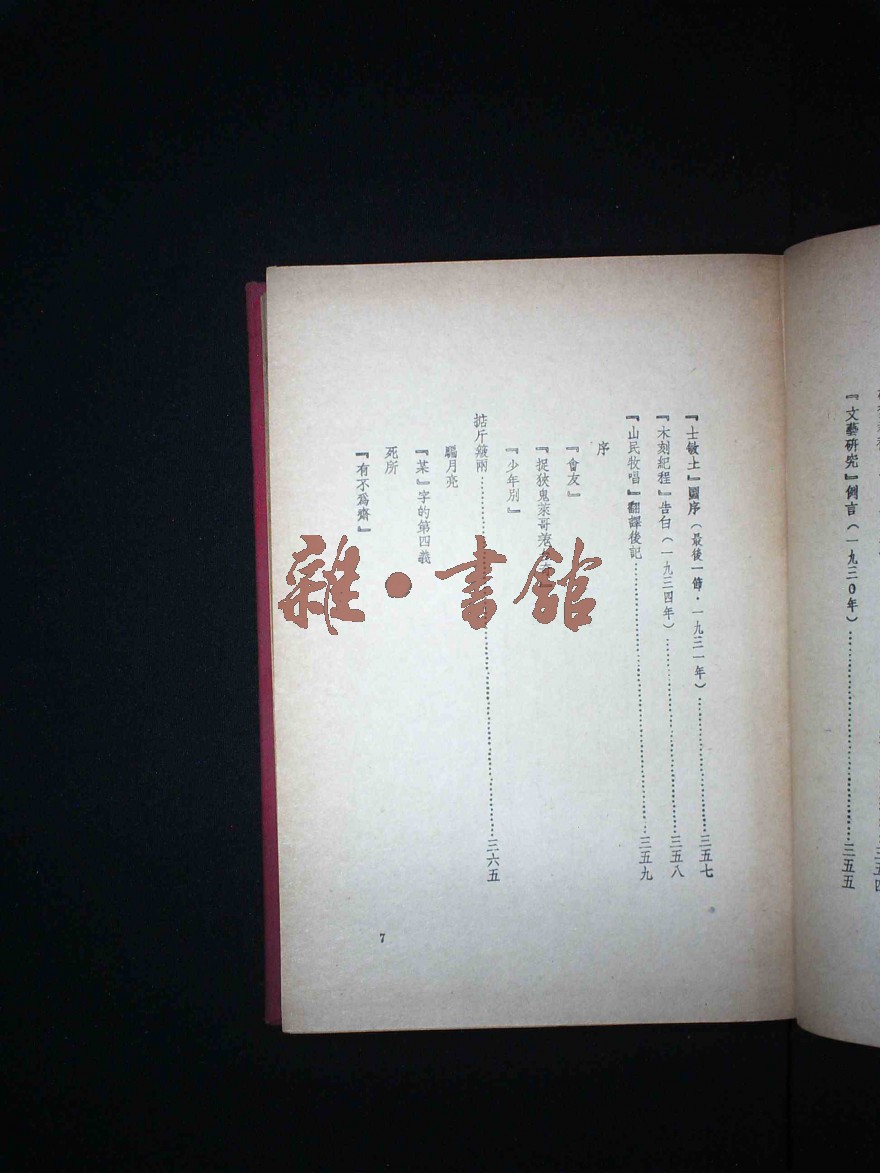 『文藝研究』例言(一九三〇年)……三五五
『士敏土』圖序(最後一節·一九三一年)……三五七
『木刻紀程』告白(一九三四年)……三五八
『山民牧唱』翻譯後記……三五九
序
『會友』
『捉狹鬼萊哥
『少年別』
掂斤簸兩……三六五
驅月亮
『某』字的第四義
死所
『有不爲齋』
7
雜·書館